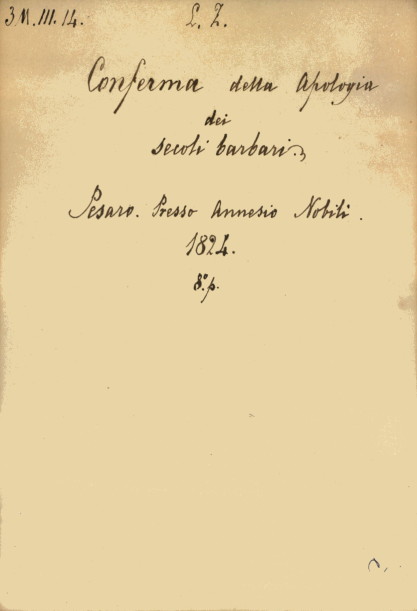 3 M. III. 14.
L. Z.
Conferma della Apologia
dei
secoli barbari.
Pesaro. Presso Annesio Nobili.
1824.
8.° p.